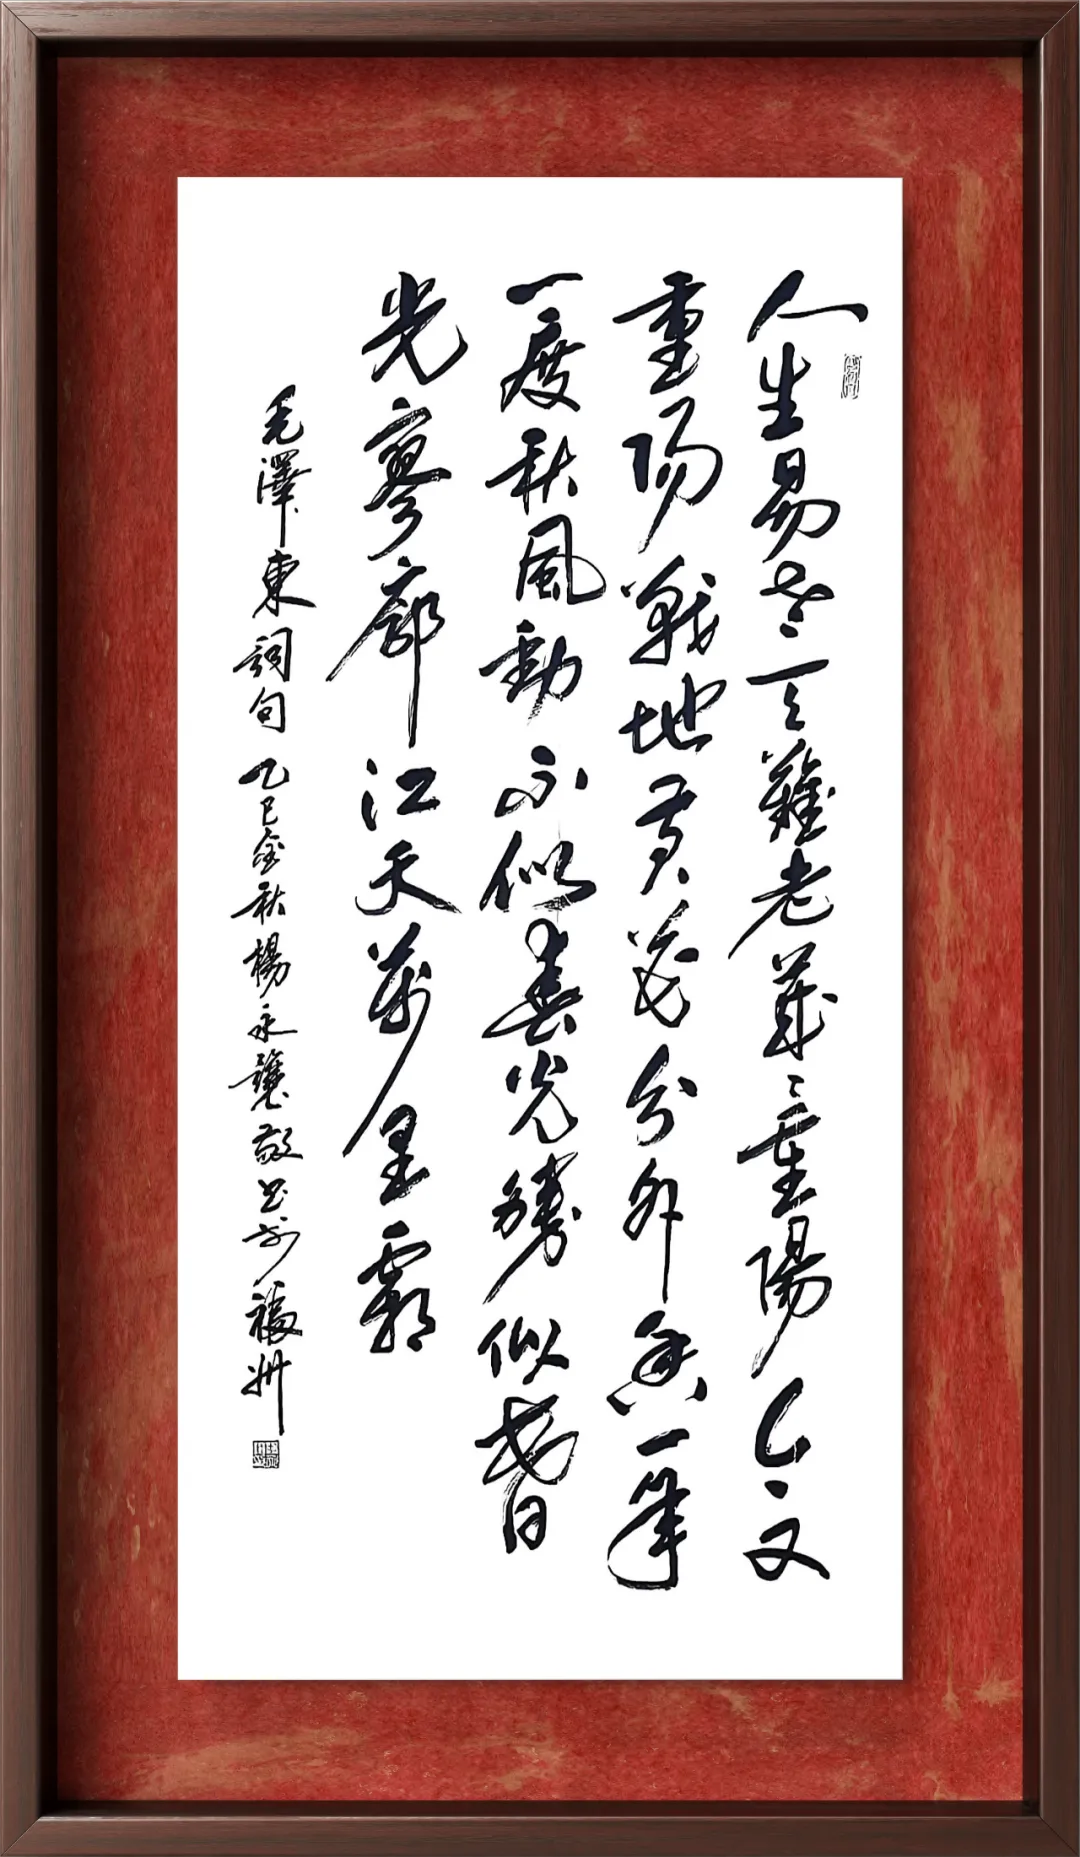 人生易老天難老歲〻重陽今又
重陽戰地黃花分外香一年
一度秋風勁不似春光勝似春
光寥廓江天萬里霜
毛澤東詞句 乙巳金秋楊永敬書於福州